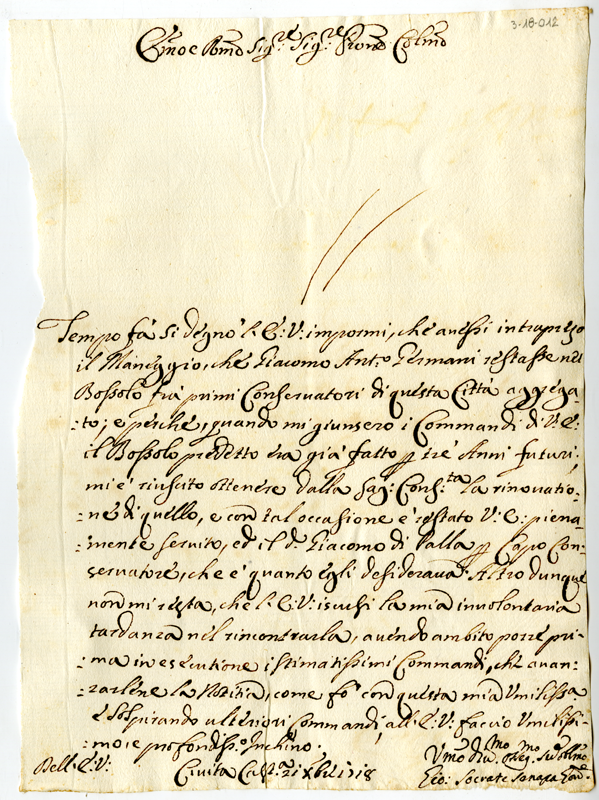 3-18-012
Emo e Rmo Sig.re Sig.re Prone Colmo
Tempo fà si degnò l'E: V: impormi, che avessi intrapreso
il Maneggio, che Giacomo Ant.o Germani restasse nel
Bossolo frà primi Conservatori di questa Città aggrega-
:to; e perche, quando mi giunsero i Commandi di V: E:
il Bossolo predetto era già fatto p tre Anni futuri,
mi è riuscito ottenere dalla Sag: Cons:ta la rinovatio-
:ne di quello, e con tal occasione è restato V: E: piena-
:mente servito, ed il d.o Giacomo di Palla p Capo Con-
servatore, che è quanto egli desiderava. Altro dunque
non mi resta, che l'E: V: iscusi la mia involontaria
tardanza nel rincontrarla, avendo ambito porre pri-
:ma in esecutione i stimatissimi Commandi, che avan-
:zarlene la Notitia, come fò con questa mia Umilissa
e sospirando ulteriori Commandi, all'E: V: faccio Umilissi-
:mo, e profondiss.o Inchino.
Dell'E: V: Umo Dmo Obmo
Civita 21 Xbre 1718
Gio: Socrate